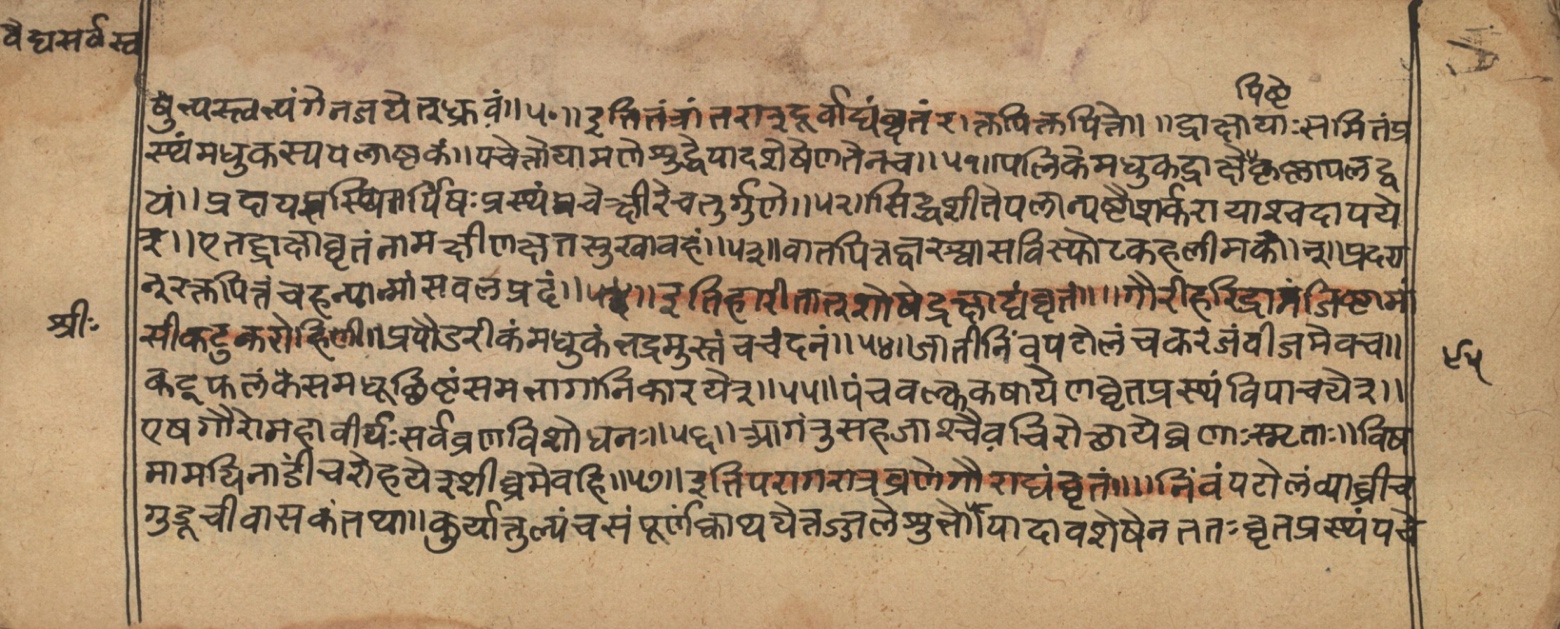 वैद्यसर्वस्व
पिष्टे
षुत्पस्त्वत्यंगेनजयेत्ध्रुवं॥५०॥इतितंत्रांतरात्दूर्वाद्यंघृतंरक्तपित्तपित्ते॥॥द्राक्षायाःसमितंप्र
स्थंमधुकस्यपलाष्टकं॥पचेत्तोयामलेशुद्धेपादशेषेणतेनच॥५१॥पलिकेमधुकद्राक्षेकृष्णापलद्व
यं॥प्रदायसर्पिषःप्रस्थंपचेत्क्षीरेचतुर्गुणे॥५२॥सिद्धशीतेपलान्यष्टौशर्करायाश्चदापये
त्॥एतद्राक्षाघृतंनामक्षीणक्षतसुखावहं॥५३॥वातपित्तज्वरश्वासविस्फोटकहलीमकान्॥प्रदरा
न्रक्तपित्तंचहन्यान्मांसबलप्रदं॥५४॥इतिहारीतात्शोषेद्राक्षाद्यंघृतं॥॥गौरीहरिद्रामंजिष्ठामां
सीकटुकरोहिणी॥प्रपौंडरीकंमधुकंभद्रमुस्तंचचंदनं॥५४॥जातीनिंबपटोलंचकरंजंबीजमेवच॥
कट्फलंकेसमधूच्छिष्टंसमभागानिकारयेत्॥५५॥पंचवल्ककषायेणघृतप्रस्थंविपाचयेत्॥
एषगौरोमहावीर्यःसर्वव्रणविशोधनः॥५६॥आगंतुसहजाश्चैवचिरोत्थायेव्रणाःस्मृताः॥विष
मामपिनाडींचरोहयेत्शीघ्रमेवहि॥५७॥इतिपरागरात्व्रणेगौराद्यंघृतं॥॥निंबंपटोलंव्याघ्रीच
गुडूचीवासकंतथा॥कुर्यात्तुल्यंचसंपूर्णंक्वाथयेत्तज्जलेशुभे॥पादावशेषेनततःघृतप्रस्थंपचे
श्रीः